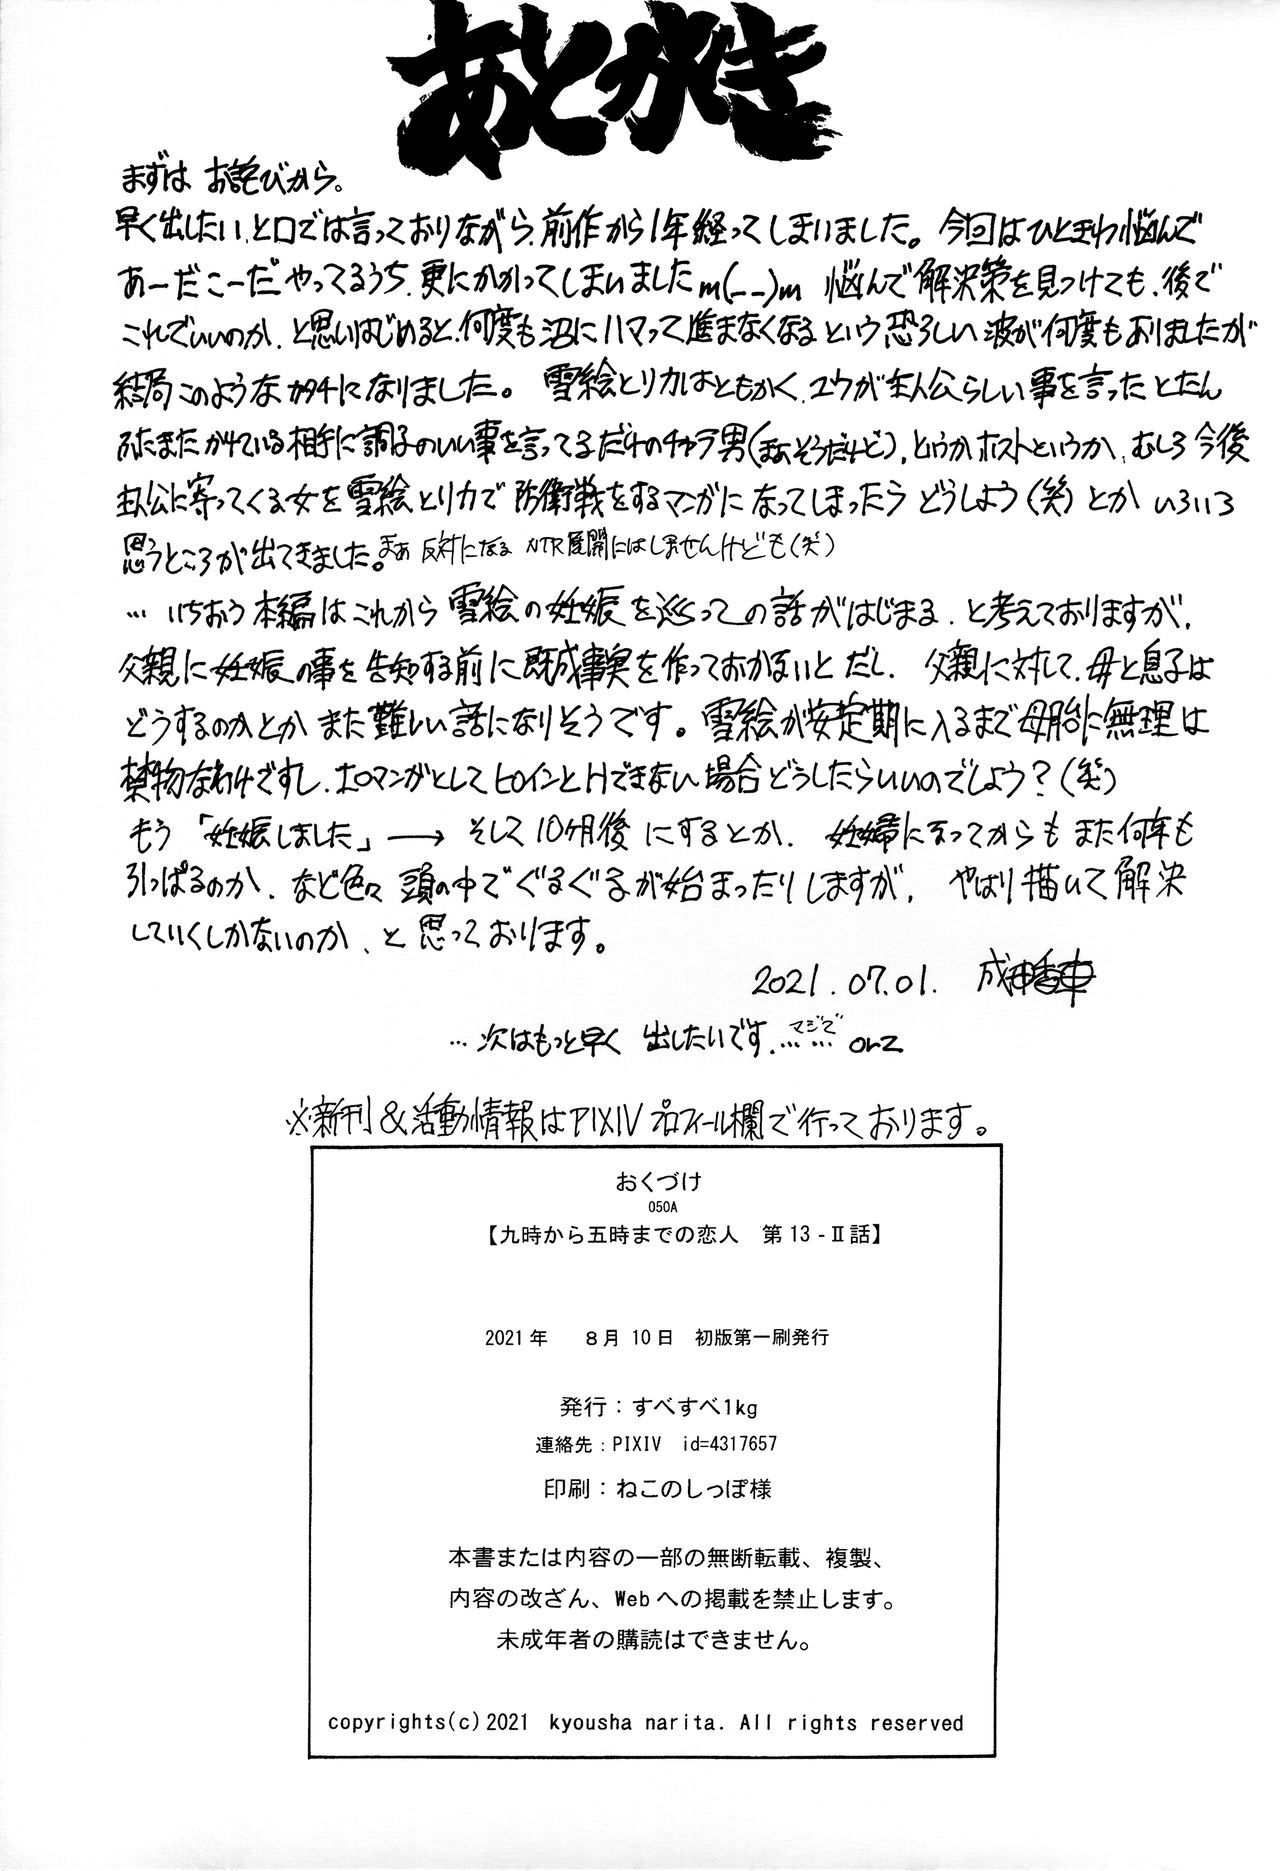 あとがき
まずは お詫びから。
早く出したい、と口では言っておりながら、前作から1年経ってしまいました。今回はひときわ悩んで
あーだこーだやってるうち、更にかかってしまいましたm(__)m 悩んで解決策を見つけても、後で
これでいいのか、と思いはじめると、何度も沼にハマって進まなくなるという恐ろしい波が何度もありましたが
結局このようなカタチになりました。雪絵とリカはともかく、ユウが主人公らしい事を言ったとたん
ふたまたかけている相手に調子のいい事を言ってるだけのチャラ男(まぁそうだけど)、というかホストというか、むしろ今後
主人公に寄ってくる女を雪絵とリカで防衛戦をするマンガになってしまったらどうしよう(笑)とかいろいろ
思うところが出てきました。まぁ反対になるNTR展開にはしませんけども(笑)
…いちおう本編はこれから雪絵の妊娠を巡っての話がはじまる、と考えておりますが、
父親に妊娠の事を告知する前に既成事実を作っておかないとだし、父親に対して、母と息子は
どうするのかとかまた難しい話になりそうです。雪絵が安定期に入るまで母胎に無理は
禁物なわけですし、エロマンガとしてヒロインとHできない場合どうしたらいいのでしょう?(笑)
もう「妊娠しました」→そして10ヶ月後にするとか、妊婦になってからもまた何年も
引っぱるのか、など色々頭の中でぐるぐるが始まったりしますが、やはり描いて解決
していくしかないのか、と思っております。
2021.07.01. 成田香車
…次はもっと早く出したいです、マジで…… orz
※新刊&活動情報はPIXIVプロフィール欄で行っております。
おくづけ
050A
【九時から五時までの恋人 第13-Ⅱ話】
2021年 8月10日 初版第一刷発行
発行:すべすべ1kg
連絡先:PIXIV id=4317657
印刷:ねこのしっぽ様
本書または内容の一部の無断転載、複製、
内容の改ざん、Webへの掲載を禁止します。
未成年者の購読はできません。
copyrights(c)2021 kyousha narita. All rights reserved